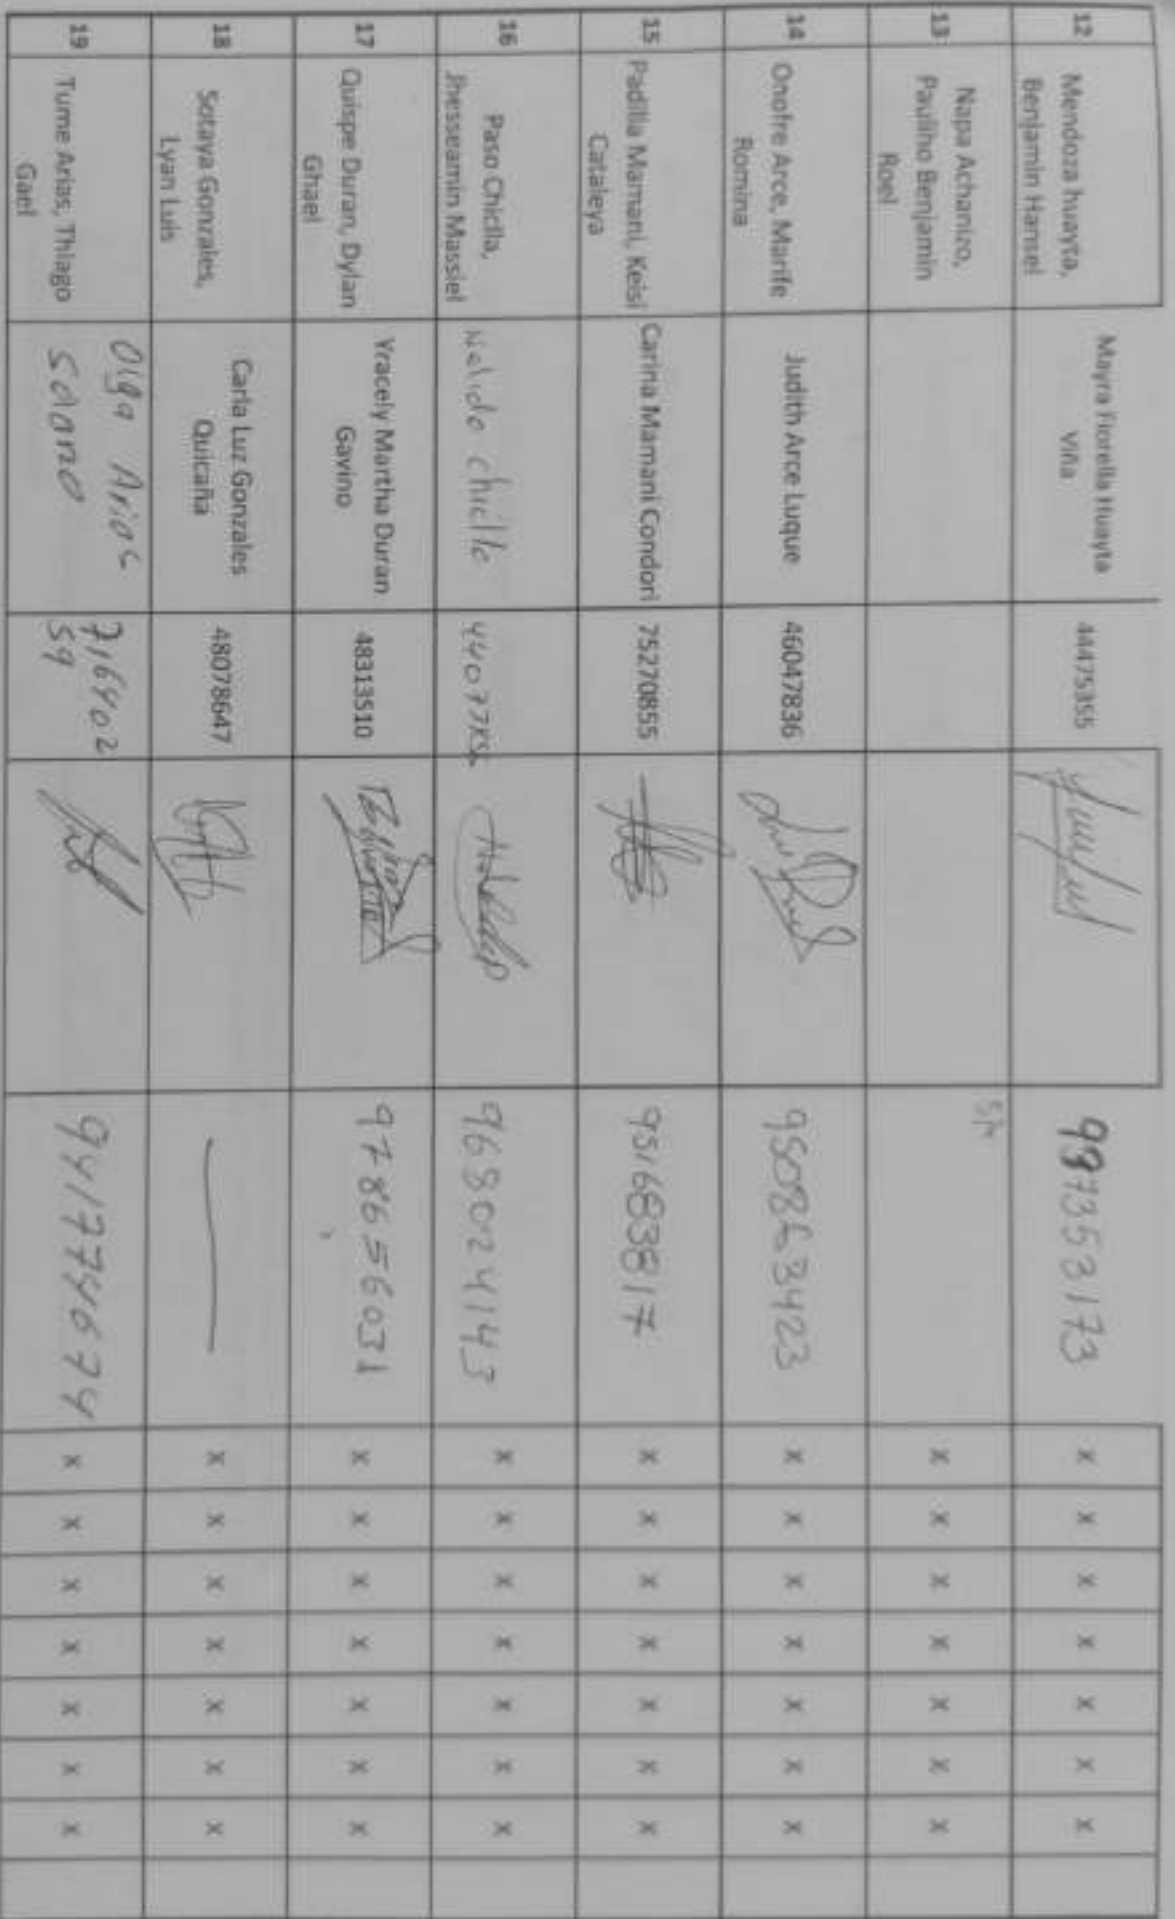 12
Mendoza huayta,
Benjamin Hansel
Mayra Fiorella Huayta
Viña
44475355
997353173
x x x x x x x
13
Napa Achanizo,
Paulino Benjamin
Roel
S/N
x x x x x x x
14
Onofre Arce, Marife
Romina
Judith Arce Luque
46047836
950863423
x x x x x x x
15
Padilla Mamani, Keisi
Cataleya
Carina Mamani Condori
75270855
951683817
x x x x x x x
16
Paso Chiclla,
Jhesseamin Massiel
chiclle
968024143
x x x x x x x
17
Quispe Duran, Dylan
Ghael
Yracely Martha Duran
Gavino
48313510
978656031
x x x x x x x
18
Sotaya Gonzales,
Lyan Luis
Carla Luz Gonzales
Quicaña
48078647
x x x x x x x
19
Tume Arias, Thiago
Gael
Olga Arias
Solano
716402
59
941774674
x x x x x x x